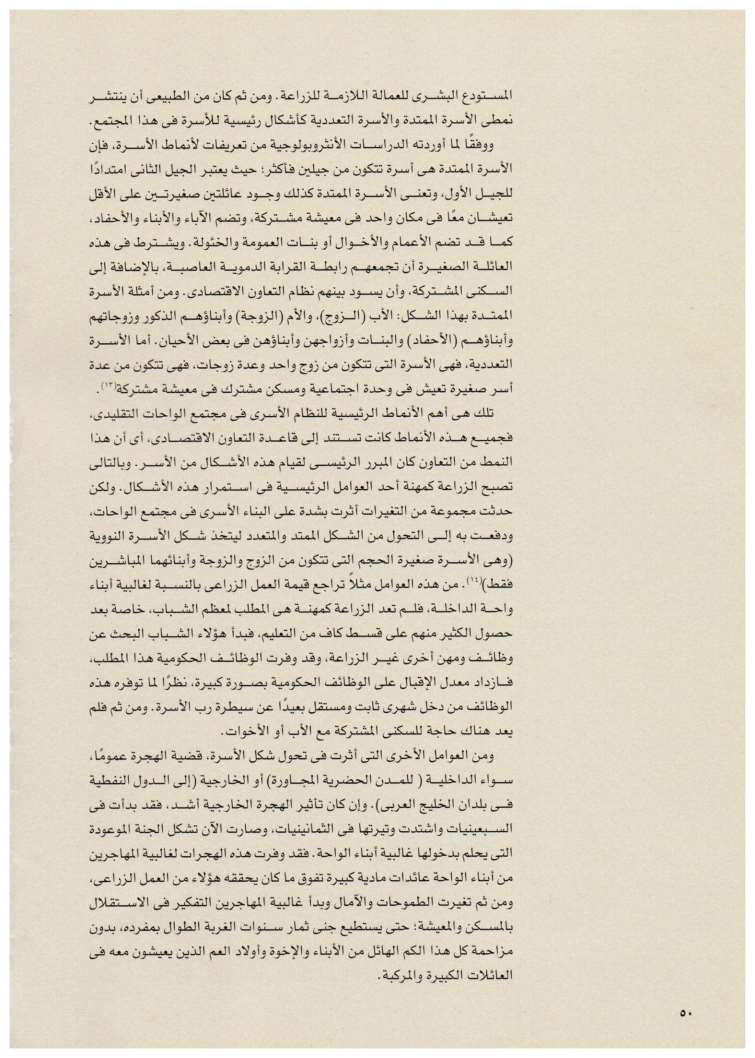 المستودع البشرى للعمالة اللازمة للزراعة. ومن ثم كان من الطبيعى أن ينتشر
نمطى الأسرة الممتدة والأسرة التعددية كأشكال رئيسية للأسرة فى هذا المجتمع.
ووفقًا لما أوردته الدراسات الأنثروبولوجية من تعريفات لأنماط الأسرة، فإن
الأسرة الممتدة هى أسرة تتكون من جيلين فأكثر؛ حيث يعتبر الجيل الثانى امتدادًا
للجيل الأول، وتعنى الأسرة الممتدة كذلك وجود عائلتين صغيرتين على الأقل
تعيشان معًا فى مكان واحد فى معيشة مشتركة، وتضم الآباء والأبناء والأحفاد،
كما قد تضم الأعمام والأخوال أو بنات العمومة والخئولة. ويشترط فى هذه
العائلة الصغيرة أن تجمعهم رابطة القرابة الدموية العاصبة، بالإضافة إلى
السكنى المشتركة، وأن يسود بينهم نظام التعاون الاقتصادى. ومن أمثلة الأسرة
الممتدة بهذا الشكل: الأب (الزوج)، والأم (الزوجة) وأبناؤهم الذكور وزوجاتهم
وأبناؤهم (الأحفاد) والبنات وأزواجهن وأبناؤهن فى بعض الأحيان. أما الأسرة
التعددية، فهى الأسرة التى تتكون من زوج واحد وعدة زوجات، فهى تتكون من عدة
أسر صغيرة تعيش فى وحدة اجتماعية ومسكن مشترك فى معيشة مشتركة(١٣).
تلك هى أهم الأنماط الرئيسية للنظام الأسرى فى مجتمع الواحات التقليدى،
فجميع هذه الأنماط كانت تستند إلى قاعدة التعاون الاقتصادى، أى أن هذا
النمط من التعاون كان المبرر الرئيسى لقيام هذه الأشكال من الأسر. وبالتالى
تصبح الزراعة كمهنة أحد العوامل الرئيسية فى استمرار هذه الأشكال. ولكن
حدثت مجموعة من التغيرات أثرت بشدة على البناء الأسرى فى مجتمع الواحات،
ودفعت به إلى التحول من الشكل الممتد والمتعدد ليتخذ شكل الأسرة النووية
(وهى الأسرة صغيرة الحجم التى تتكون من الزوج والزوجة وأبنائهما المباشرين
فقط)(١٤). من هذه العوامل مثلاً تراجع قيمة العمل الزراعى بالنسبة لغالبية أبناء
واحة الداخلة، فلم تعد الزراعة كمهنة هى المطلب لمعظم الشباب، خاصة بعد
حصول الكثير منهم على قسط كاف من التعليم، فبدأ هؤلاء الشباب البحث عن
وظائف ومهن أخرى غير الزراعة، وقد وفرت الوظائف الحكومية هذا المطلب،
فازداد معدل الإقبال على الوظائف الحكومية بصورة كبيرة، نظرًا لما توفره هذه
الوظائف من دخل شهرى ثابت ومستقل بعيدًا عن سيطرة رب الأسرة. ومن ثم فلم
يعد هناك حاجة للسكنى المشتركة مع الأب أو الأخوات.
ومن العوامل الأخرى التى أثرت فى تحول شكل الأسرة، قضية الهجرة عمومًا،
سواء الداخلية ( للمدن الحضرية المجاورة) أو الخارجية (إلى الدول النفطية
فى بلدان الخليج العربى). وإن كان تأثير الهجرة الخارجية أشد، فقد بدأت فى
السبعينيات واشتدت وتيرتها فى الثمانينيات، وصارت الآن تشكل الجنة الموعودة
التى يحلم بدخولها غالبية أبناء الواحة. فقد وفرت هذه الهجرات لغالبية المهاجرين
من أبناء الواحة عائدات مادية كبيرة تفوق ما كان يحققه هؤلاء من العمل الزراعى،
ومن ثم تغيرت الطموحات والآمال وبدأ غالبية المهاجرين التفكير فى الاستقلال
بالمسكن والمعيشة؛ حتى يستطيع جنى ثمار سنوات الغربة الطوال بمفرده، بدون
مزاحمة كل هذا الكم الهائل من الأبناء والإخوة وأولاد العم الذين يعيشون معه فى
العائلات الكبيرة والمركبة.
٥٠